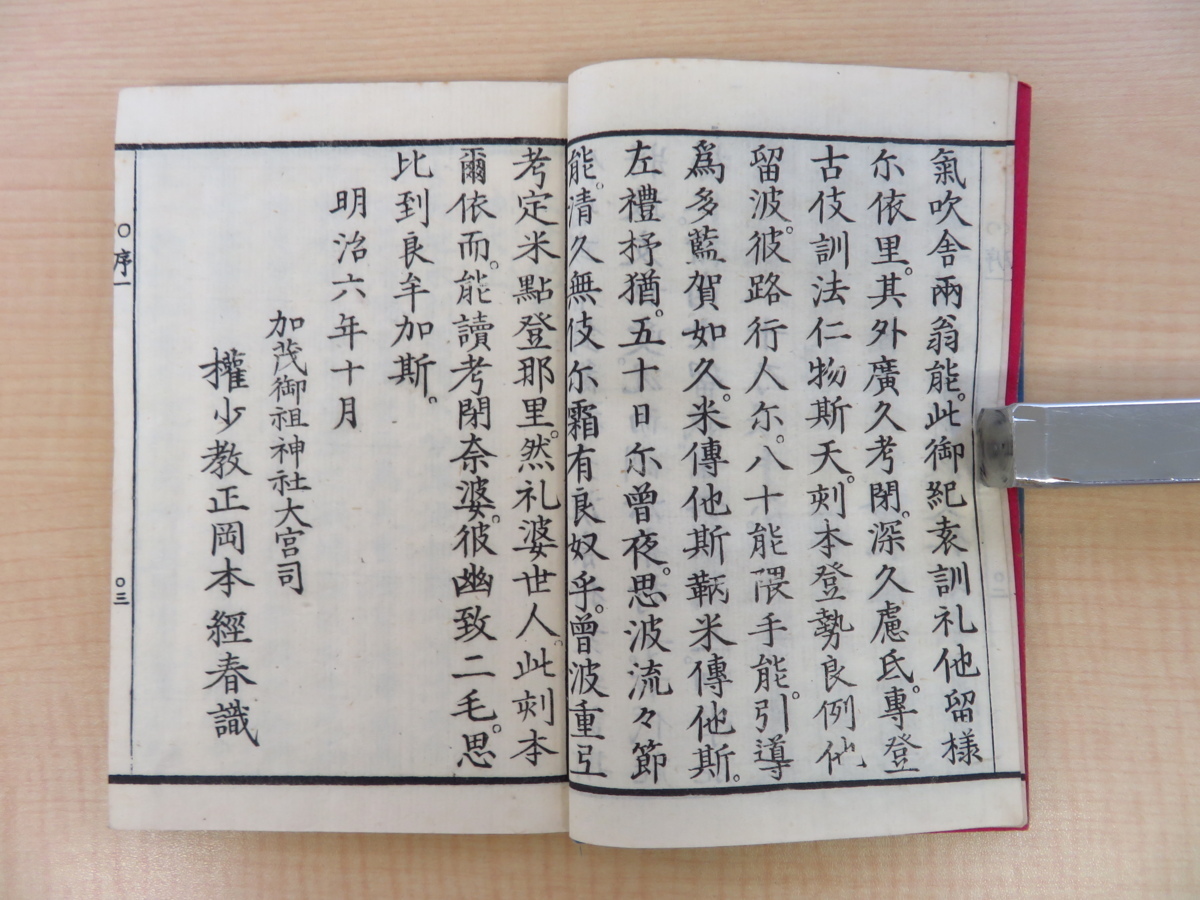 氣吹舎兩翁能。此御紀袁訓礼他留様
尓依里。其外廣久考閇。深久慮氐。專登
古伎訓法仁物斯天。刻本登勢良例他
留波。彼路行人尓。八十能隈手能。引導
爲多藍賀如久。米傳他斯鞆米傳他斯。
左禮抒猶。五十日尓曽夜。思波流々節
能。清久無伎尓霜有良奴乎。曽波重引
考定米點登那里。然礼婆世人。此刻本
爾依而。能讀考閇奈婆。彼幽致二毛。思
比到良牟加斯。
明治六年十月
加茂御祖神社大宮司
權少教正岡本經春識
〇序一
〇三